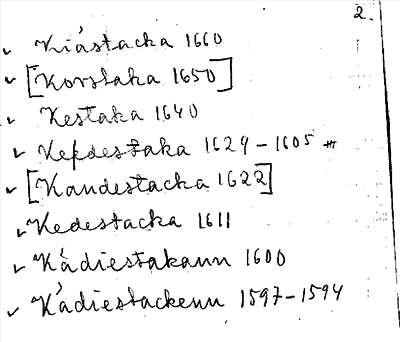 2.
Kiástacka 1660
[Korstaka 1650]
Kestaka 1640
Kepdestaka 1629-1605 ***
[Kandestacka 1622]
Kedestacka 1611
Kádiestakann 1600
Kádiestackenn 1597-1594